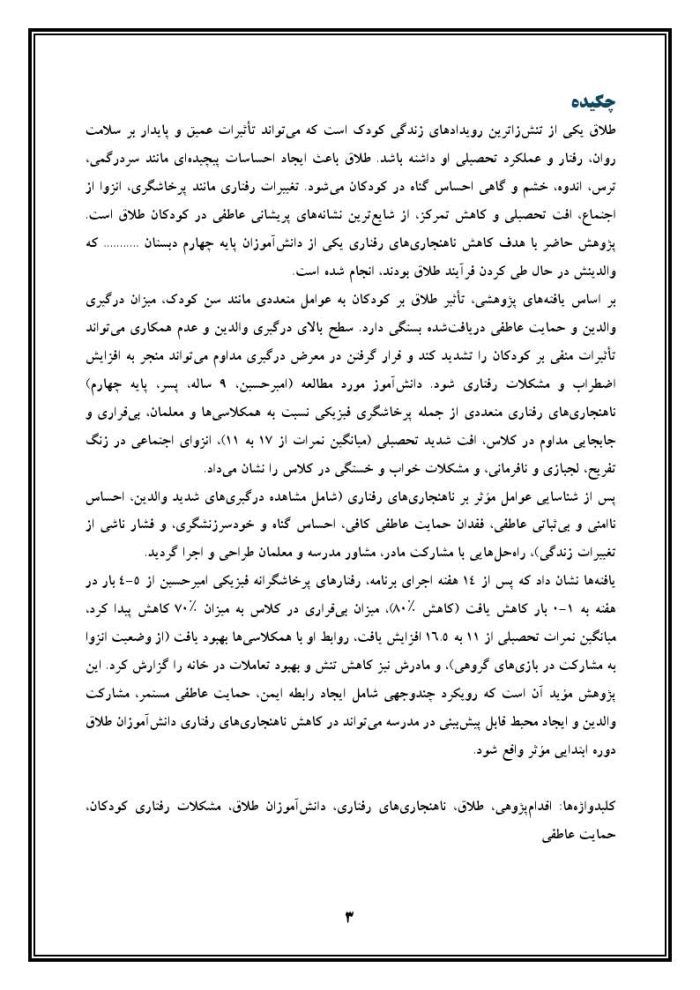 چکیده
طلاق یکی از تنش‌زاترین رویدادهای زندگی کودک است که می‌تواند تأثیرات عمیق و پایدار بر سلامت
روان، رفتار و عملکرد تحصیلی او داشته باشد. طلاق باعث ایجاد احساسات پیچیده‌ای مانند سردرگمی،
ترس، اندوه، خشم و گاهی احساس گناه در کودکان می‌شود. تغییرات رفتاری مانند پرخاشگری، انزوا از
اجتماع، افت تحصیلی و کاهش تمرکز، از شایع‌ترین نشانه‌های پریشانی عاطفی در کودکان طلاق است.
پژوهش حاضر با هدف کاهش ناهنجاری‌های رفتاری یکی از دانش‌آموزان پایه چهارم دبستان ........... که
والدینش در حال طی کردن فرآیند طلاق بودند، انجام شده است.
بر اساس یافته‌های پژوهشی، تأثیر طلاق بر کودکان به عوامل متعددی مانند سن کودک، میزان درگیری
والدین و حمایت عاطفی دریافت‌شده بستگی دارد. سطح بالای درگیری والدین و عدم همکاری می‌تواند
تأثیرات منفی بر کودکان را تشدید کند و قرار گرفتن در معرض درگیری مداوم می‌تواند منجر به افزایش
اضطراب و مشکلات رفتاری شود. دانش‌آموز مورد مطالعه (امیرحسین، ۹ ساله، پسر، پایه چهارم)
ناهنجاری‌های رفتاری متعددی از جمله پرخاشگری فیزیکی نسبت به همکلاسی‌ها و معلمان، بی‌قراری و
جابجایی مداوم در کلاس، افت شدید تحصیلی (میانگین نمرات از ۱۷ به ۱۱)، انزوای اجتماعی در زنگ
تفریح، لجبازی و نافرمانی، و مشکلات خواب و خستگی در کلاس را نشان می‌داد.
پس از شناسایی عوامل مؤثر بر ناهنجاری‌های رفتاری (شامل مشاهده درگیری‌های شدید والدین، احساس
ناامنی و بی‌ثباتی عاطفی، فقدان حمایت عاطفی کافی، احساس گناه و خودسرزنشگری، و فشار ناشی از
تغییرات زندگی)، راه‌حل‌هایی با مشارکت مادر، مشاور مدرسه و معلمان طراحی و اجرا گردید.
یافته‌ها نشان داد که پس از ۱۴ هفته اجرای برنامه، رفتارهای پرخاشگرانه فیزیکی امیرحسین از ۵-۴ بار در
هفته به ۱-۰ بار کاهش یافت (کاهش ۸۰٪)، میزان بی‌قراری در کلاس به میزان ۷۰٪ کاهش پیدا کرد،
میانگین نمرات تحصیلی از ۱۱ به ۱۶.۵ افزایش یافت، روابط او با همکلاسی‌ها بهبود یافت (از وضعیت انزوا
به مشارکت در بازی‌های گروهی)، و مادرش نیز کاهش تنش و بهبود تعاملات در خانه را گزارش کرد. این
پژوهش مؤید آن است که رویکرد چندوجهی شامل ایجاد رابطه ایمن، حمایت عاطفی مستمر، مشارکت
والدین و ایجاد محیط قابل پیش‌بینی در مدرسه می‌تواند در کاهش ناهنجاری‌های رفتاری دانش‌آموزان طلاق
دوره ابتدایی مؤثر واقع شود.
کلیدواژه‌ها: اقدام‌پژوهی، طلاق، ناهنجاری‌های رفتاری، دانش‌آموزان طلاق، مشکلات رفتاری کودکان،
حمایت عاطفی
۳